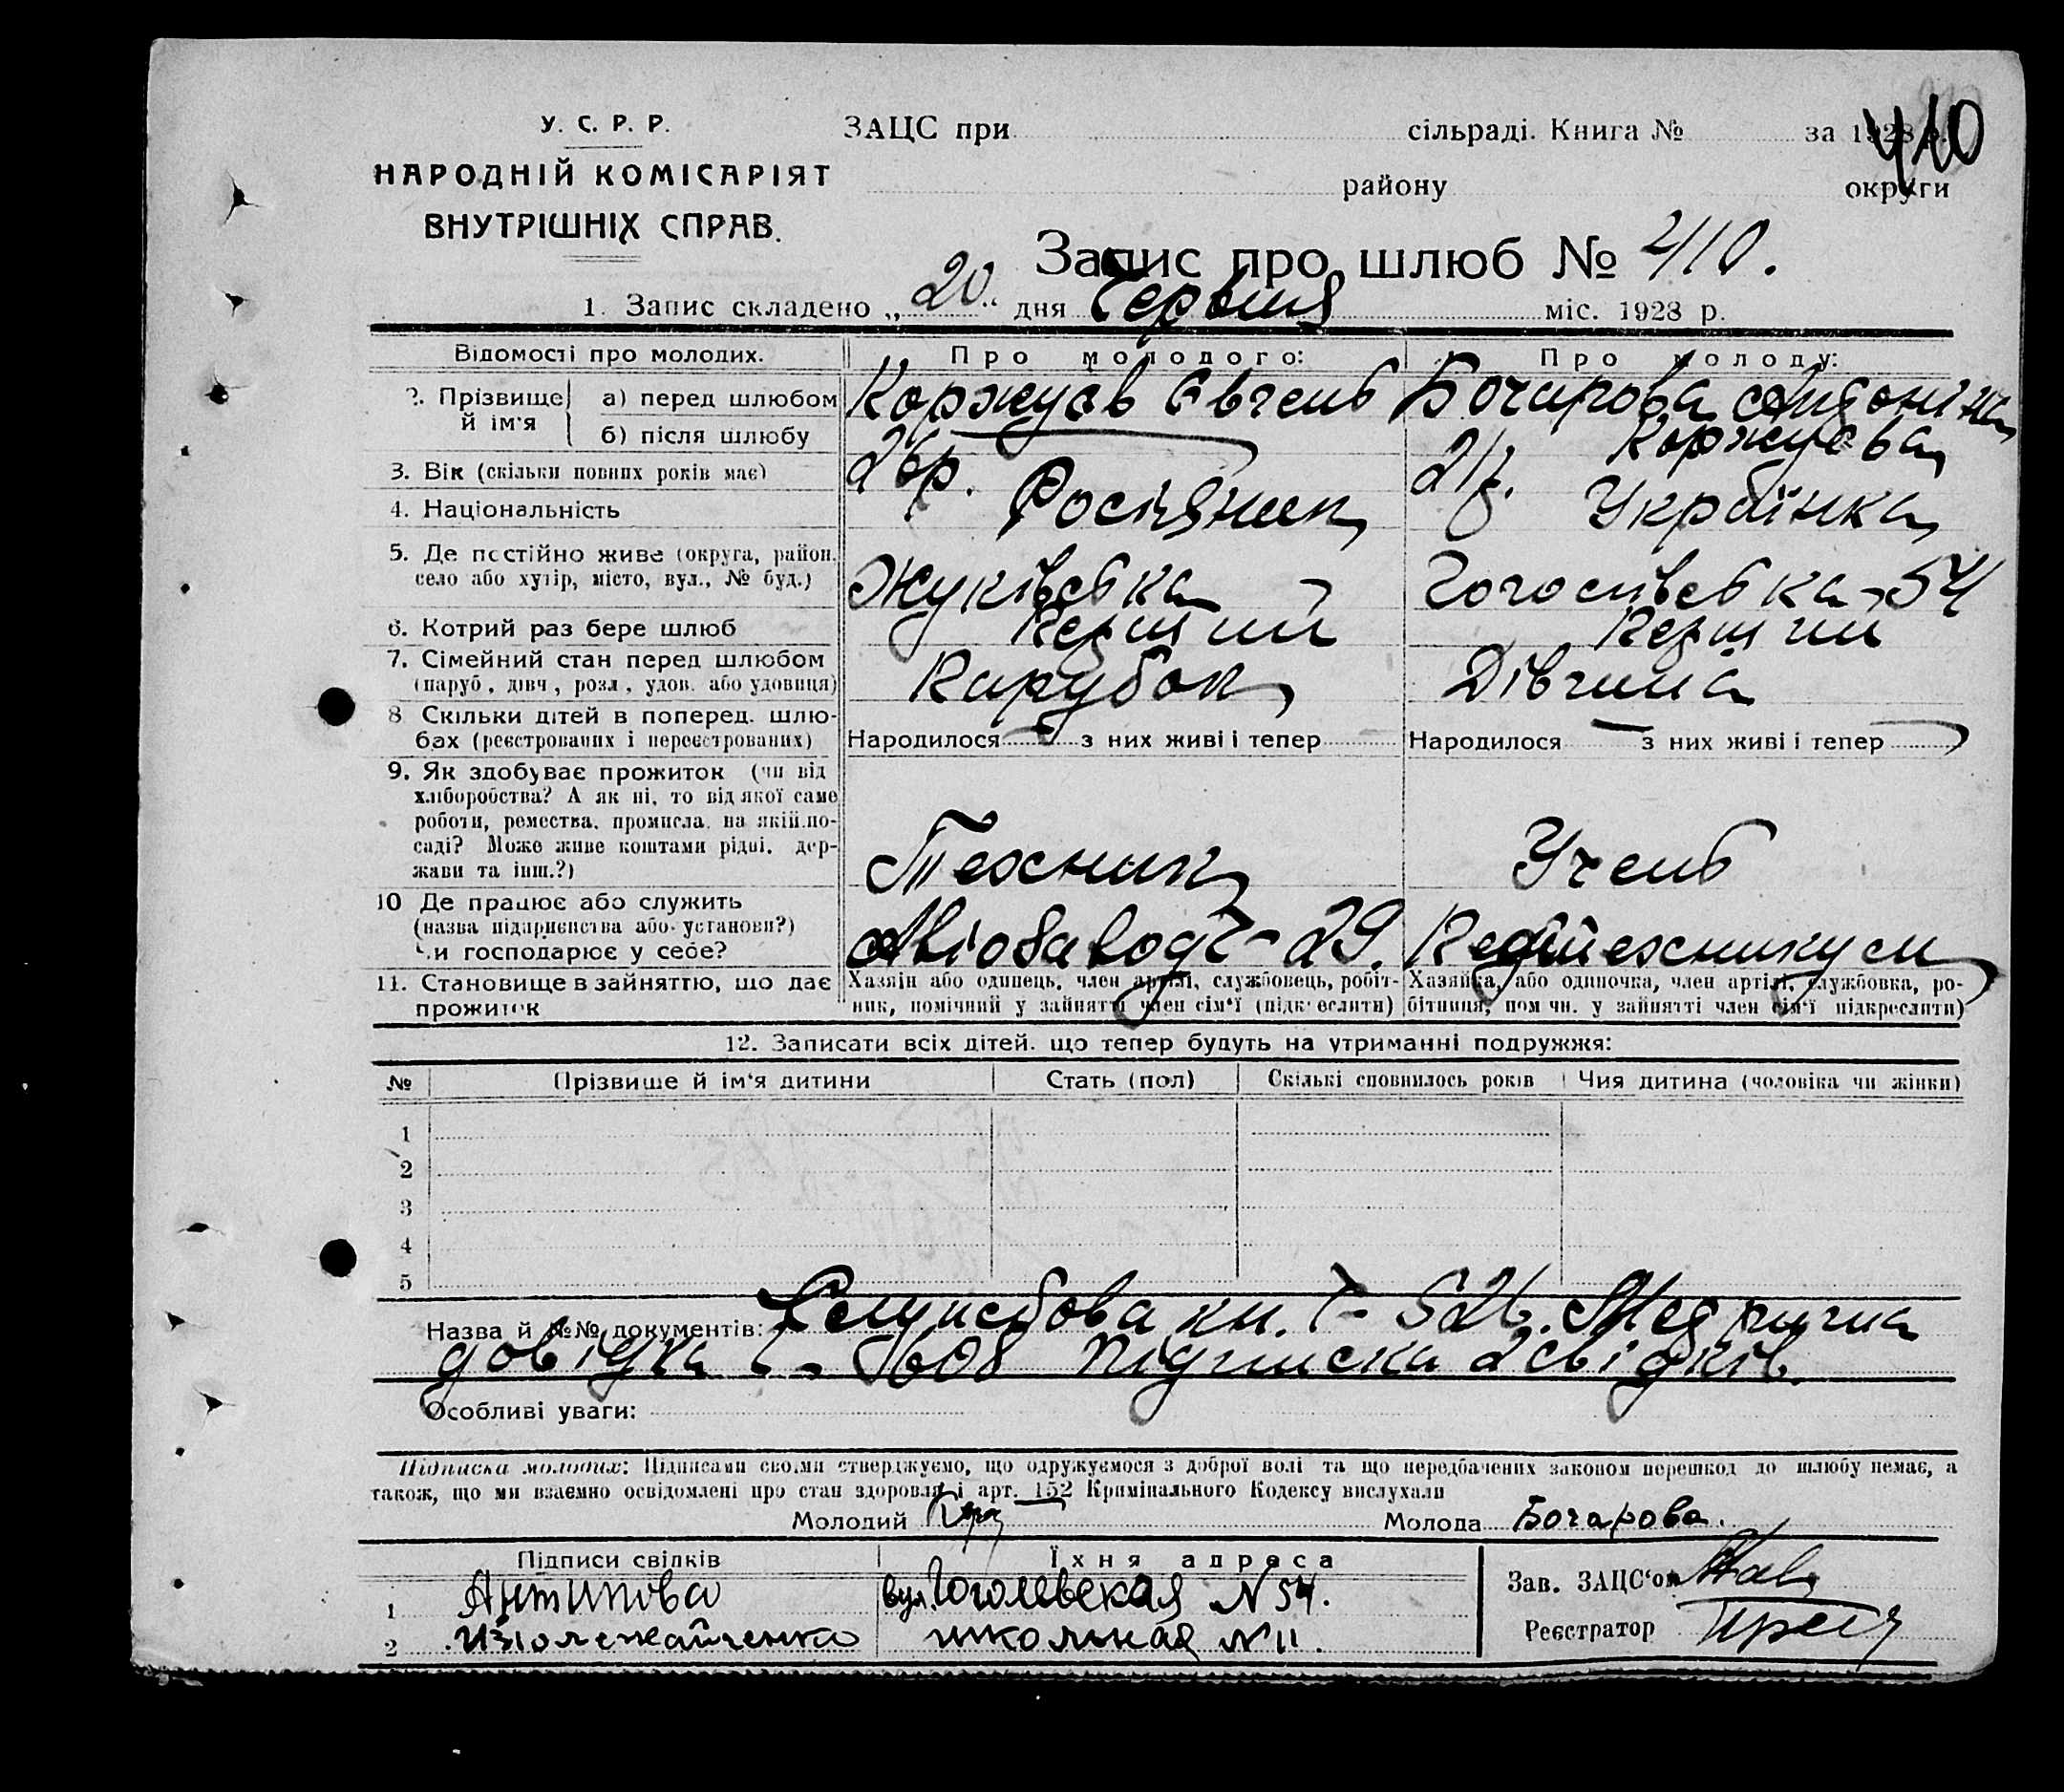 410
У. С. Р. Р.
НАРОДНІЙ КОМІСАРІЯТ
ВНУТРІШНІХ СПРАВ.
ЗАЦС при сільраді. Книга № за 1928 р.
району округи
Запис про шлюб № 410.
1. Запис складено „20“ дня Червня міс. 1928 р.
Відомості про молодих. Про молодого: Про молоду:
2. Прізвище й ім'я а) перед шлюбом Коржуєв Євгень Бочарова Антоніна
б) після шлюбу Коржуєва
3. Вік (скільки повних років має) 26р. 21р.
4. Національність Росіянин Українка
5. Де постійно живе (округа, район, село або хутір, місто, вул., № буд.) Жуківська 7 Гоголівська 54
6. Котрий раз бере шлюб Перший Перший
7. Сімейний стан перед шлюбом (паруб, дівч, розл, удов. або удовиця) Парубок Дівчина
8 Скільки дітей в поперед. шлюбах (реєстрованих і нереєстрованих) Народилося — з них живі і тепер Народилося — з них живі і тепер —
9. Як здобуває прожиток (чи від хліборобства? А як ні, то від якої саме роботи, ремества, промисла, на якій посаді? Може живе коштами рідні, держави та інш.?) Техник Учень
10 Де працює або служить (назва підприємства або установи?) Чи господарює у себе? Авіозавод Ч- 29. Педтехникум
11. Становище в зайняттю, що дає прожиток Хазяїн або одинець, член артілі, службовець, робітник, помічний у зайнятті член сім'ї (підкреслити) Хазяйка, або одиночка, член артілі, службовка, робітниця, пом чн. у зайнятті член сім'ї підкреслити)
12. Записати всіх дітей, що тепер будуть на утриманні подружжя:
№ Прізвище й ім'я дитини Стать (пол) Скількі сповнилось років Чия дитина (чоловіка чи жінки)
1
2
3
4
5
Назва й №№ документів: Служебова кн. Ч- 526. Метрична
довідка Ч- 5608 Підписка 2 свідків.
Особливі уваги:
Підписка молодих: Підписами своїми стверджуємо, що одружуємося з доброї волі та що передбачених законом перешкод до шлюбу немає, а
також, що ми взаємно освідомлені про стан здоровля і арт. 152 Кримінального Кодексу вислухали
Молодий Молода Бочарова.
Підписи свідків Їхня адреса
1 Антипова вул. Гоголевская N 54.
2 школьная N 11.
Зав. ЗАЦС'ом
Реєстратор